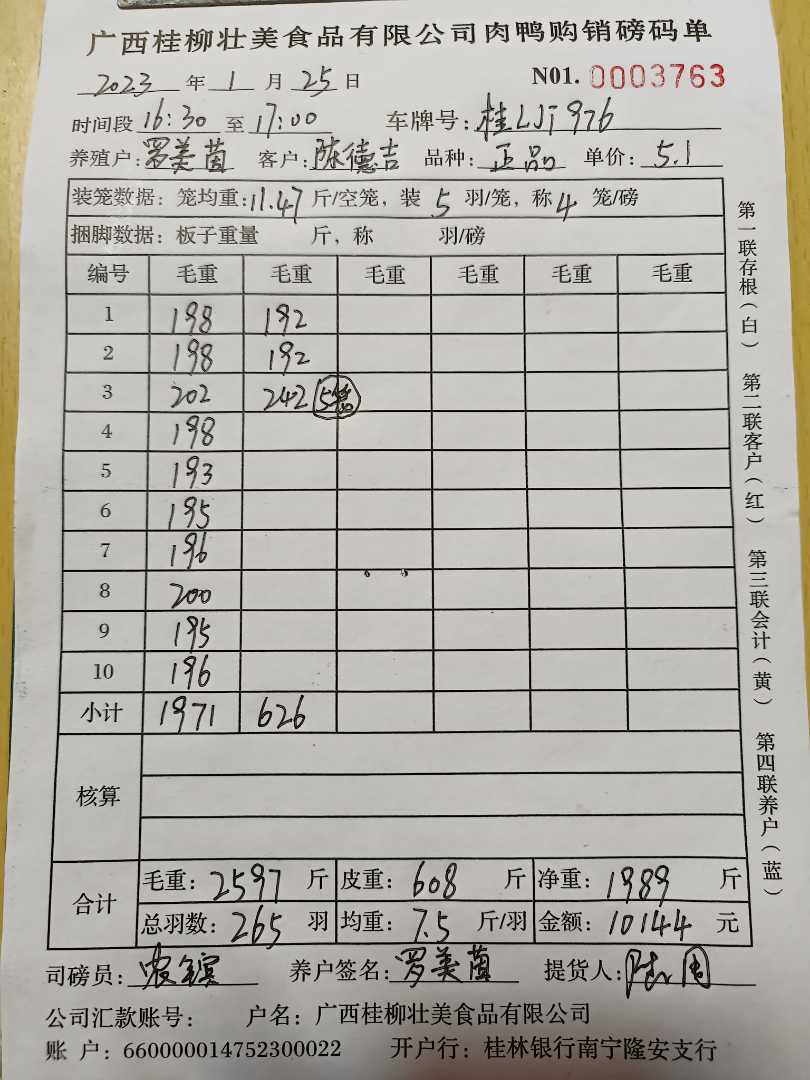 广西桂柳壮美食品有限公司肉鸭购销磅码单
2023 年 1 月 25 日 N01. 0003763
时间段 16:30 至 17:00 车牌号: 桂LJT976
养殖户: 罗美茵 客户: 陈德吉 品种: 正品 单价: 5.1
装笼数据: 笼均重: 11.47 斤/空笼, 装 5 羽/笼, 称 4 笼/磅
捆脚数据: 板子重量 斤, 称 羽/磅
编号 毛重 毛重 毛重 毛重 毛重 毛重
1 198 192
2 198 192
3 202 242 5笼
4 198
5 193
6 195
7 196
8 200
9 195
10 196
小计 1971 626
核算
合计
毛重: 2597 斤 皮重: 608 斤 净重: 1989 斤
总羽数: 265 羽 均重: 7.5 斤/羽 金额: 10144 元
司磅员: 养户签名: 罗美茵 提货人:
公司汇款账号: 户名: 广西桂柳壮美食品有限公司
账 户: 660000014752300022 开户行: 桂林银行南宁隆安支行
第一联存根(白) 第二联客户(红) 第三联会计(黄) 第四联养户(蓝)